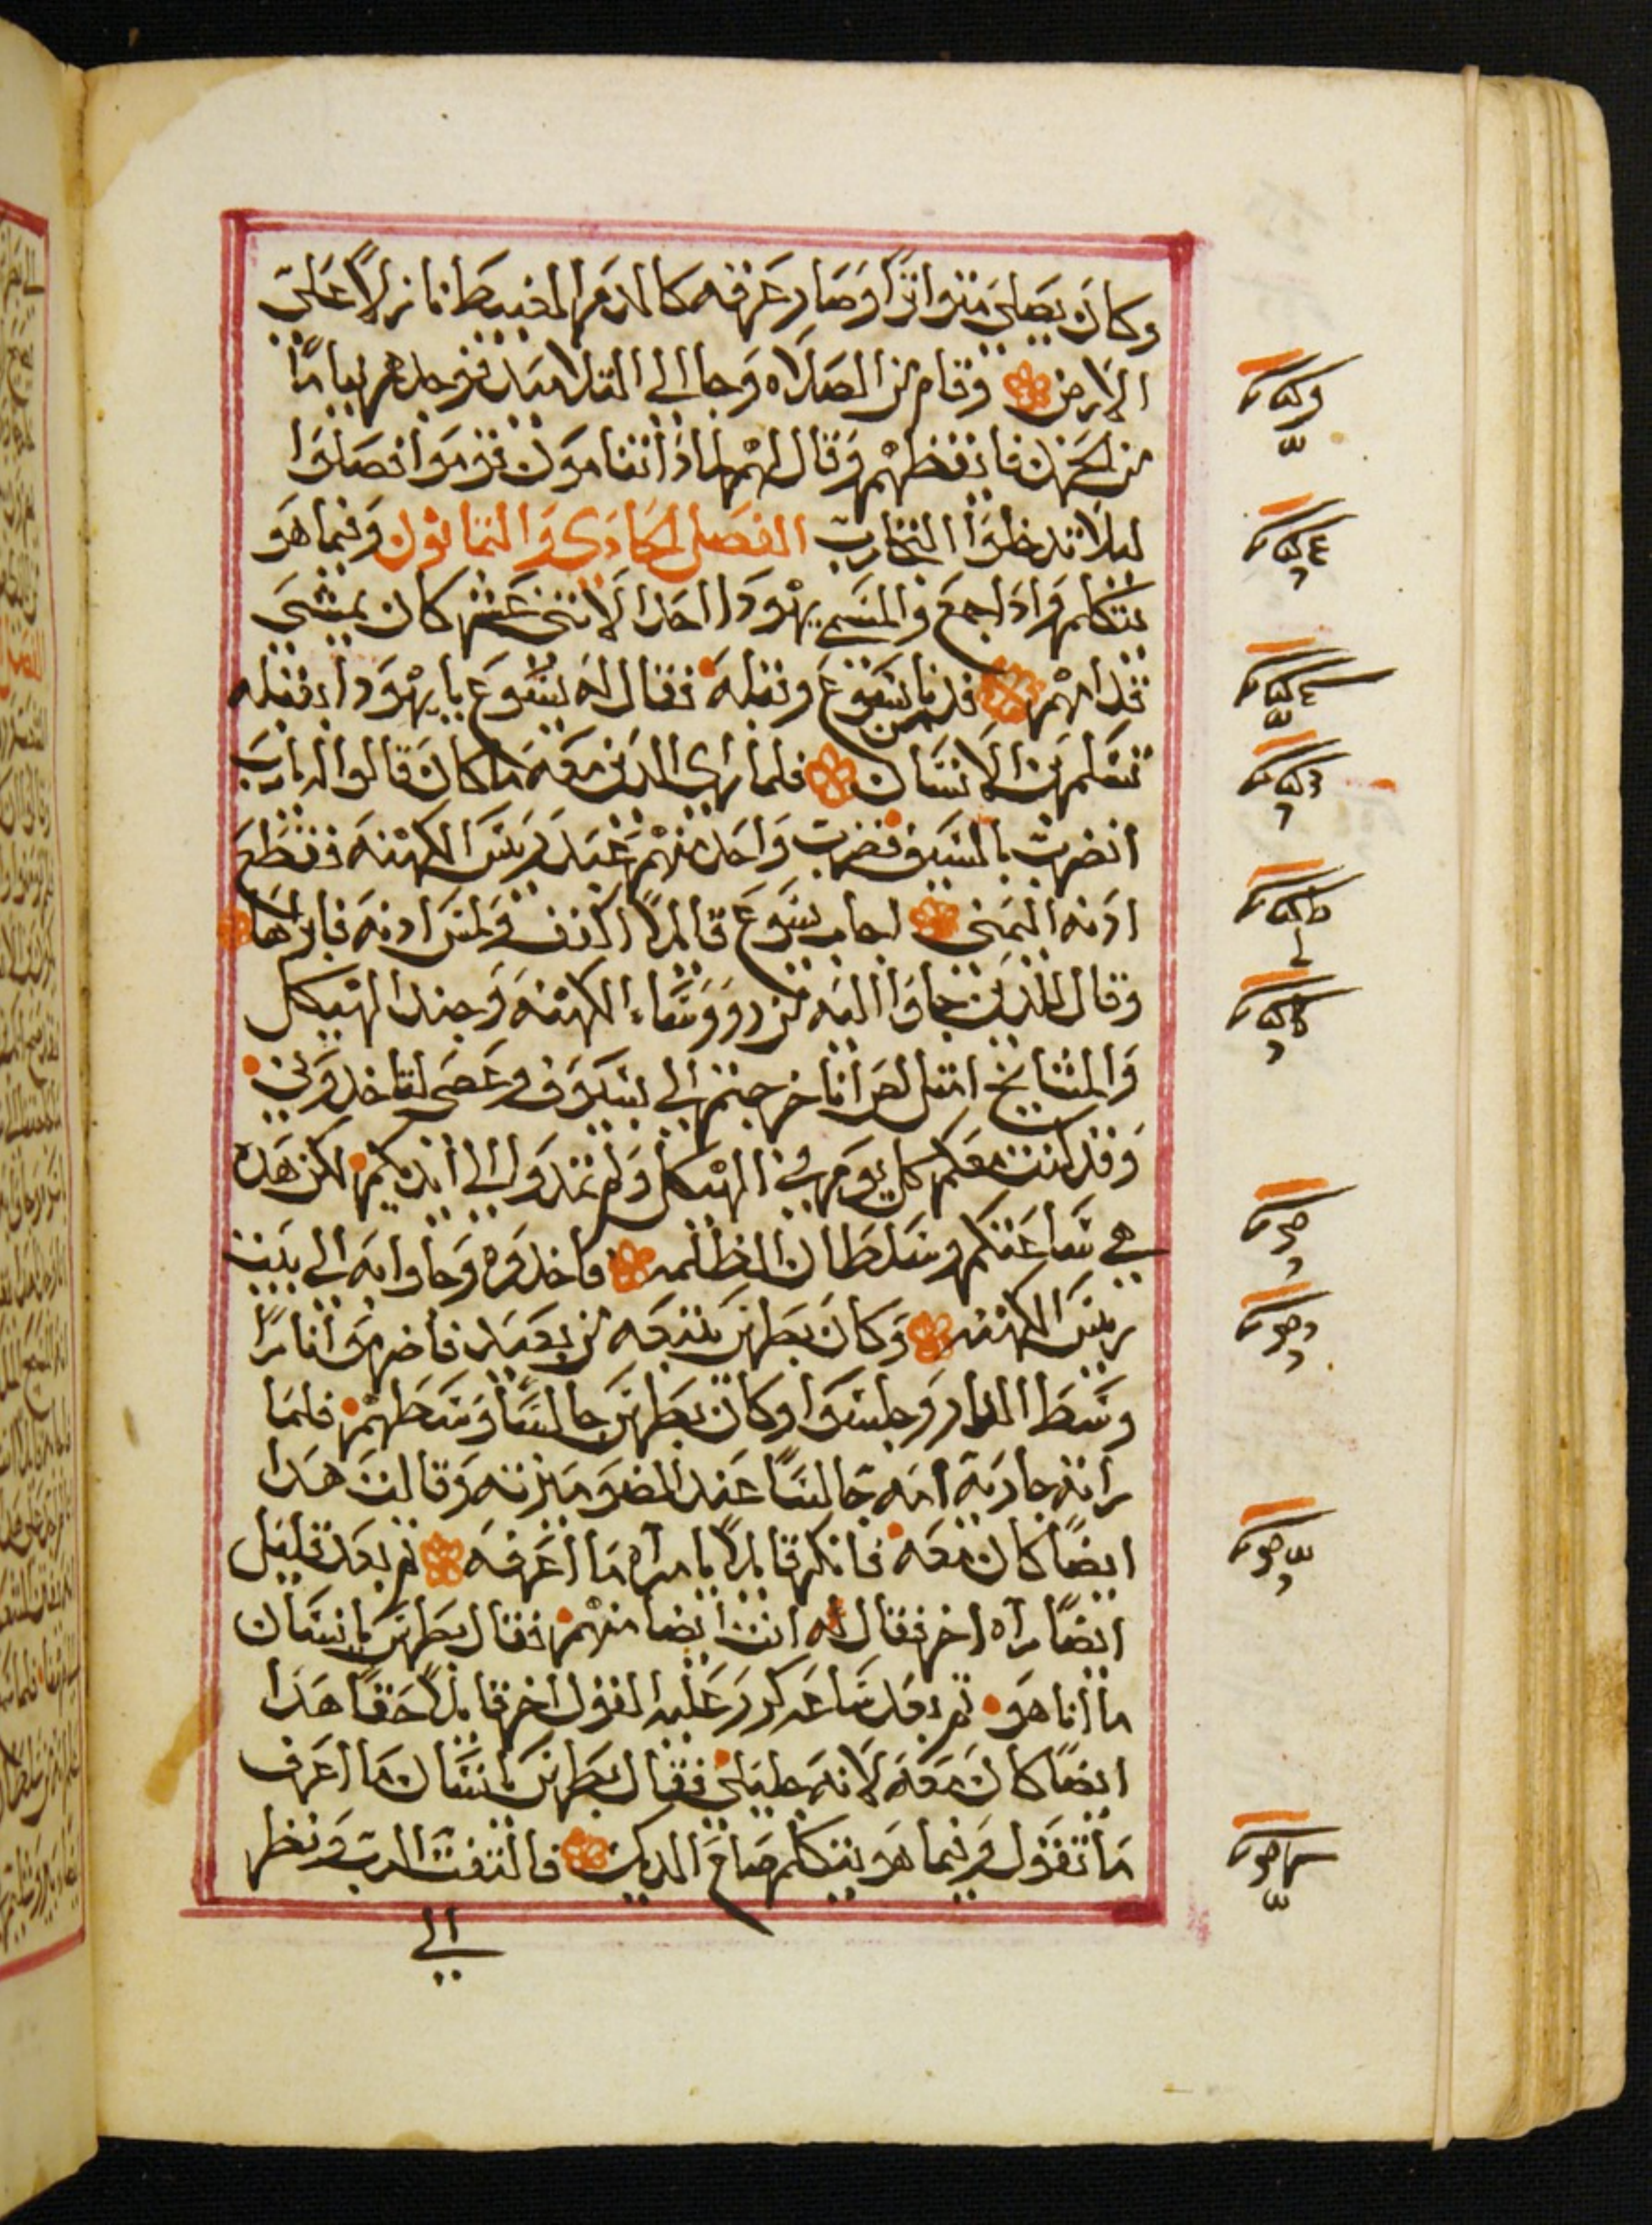 وكان يصلي متواترا وصار عرقه كالدم العبيط نازلا علي
الارض وقام من الصلاه وجا الي التلاميد فوجدهم نياما
من الحزن فايقظهم وقال لهم لمادا انتم نيام قوموا فصلوا
ليلا تدخلوا التجارب الفصل الحادي والثمانون وفيما هو
يتكلم وادا جمع والمسمى يهودا احد الاثني عشر كان يمشي
قدامهم فدنا من يسوع وقبله فقال له يسوع يا يهودا ابقبله
تسلم ابن الانسان فلما راي الدين معه ما كان قالوا له يارب
انضرب بالسيف فضرب واحد منهم عبد ريس الكهنه فقطع
ادنه اليمني اجاب يسوع قايلا اكفف ولمس ادنه فابراها
وقال للدين جاوا اليه من رووساء الكهنه وجند الهيكل
والمشايخ امثل لص اتا خرجتم الي بسيوف وعصي لتاخدوني
وقد كنت معكم كل يوم في الهيكل ولم تمدوا الي ايديكم لكن هده
هي ساعتكم وسلطان الظلمه فاخدوه وجاوا به الي بيت
ريس الكهنه وكان بطرس يتبعه من بعيد فاضرموا نارا
وسط الدار وجلسوا وكان بطرس جالسا وسطهم فلما
راته جاريه امه جالسا عند الضو ميزته وقالت هدا
ايضا كان معه فانكر قايلا يا مراه ما اعرفه ثم بعد قليل
ايضا راه اخر فقال له انت ايضا منهم فقال بطرس يا انسان
ما انا هو ثم بعد ساعه كرر عليه القول اخر قايلا حقا هدا
ايضا كان معه لانه جليلي فقال بطرس يا انسان ما اعرف
ما تقول وفيما هو يتكلم صاح الديك فالتفت الرب ونظر
الي